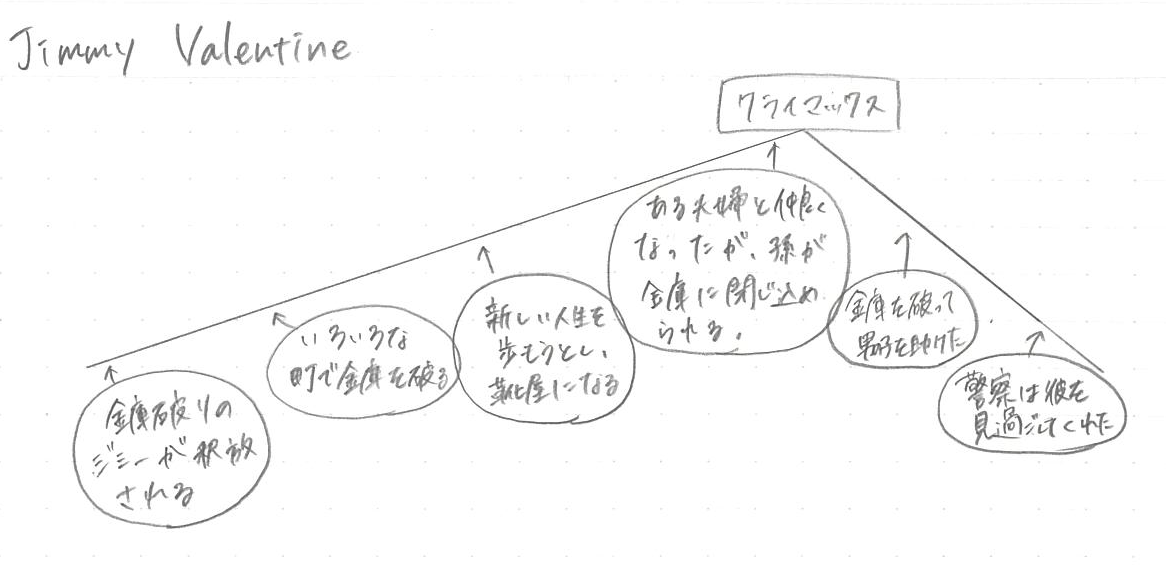 Jimmy Valentine
クライマックス
ある夫婦と仲良く
なったが、孫が
金庫に閉じ込め
られる。
新しい人生を
歩もうとし、
靴屋になる
いろいろな
町で金庫を破る
金庫破りの
ジミーが釈放
される
金庫を破って
男子を助けた
警察は彼を
見過ごしてくれた